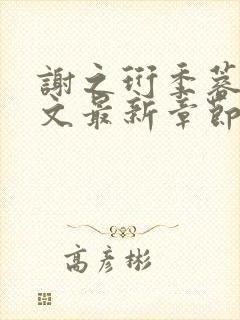 謝之衍季蓉
文最新章節
高彥彬